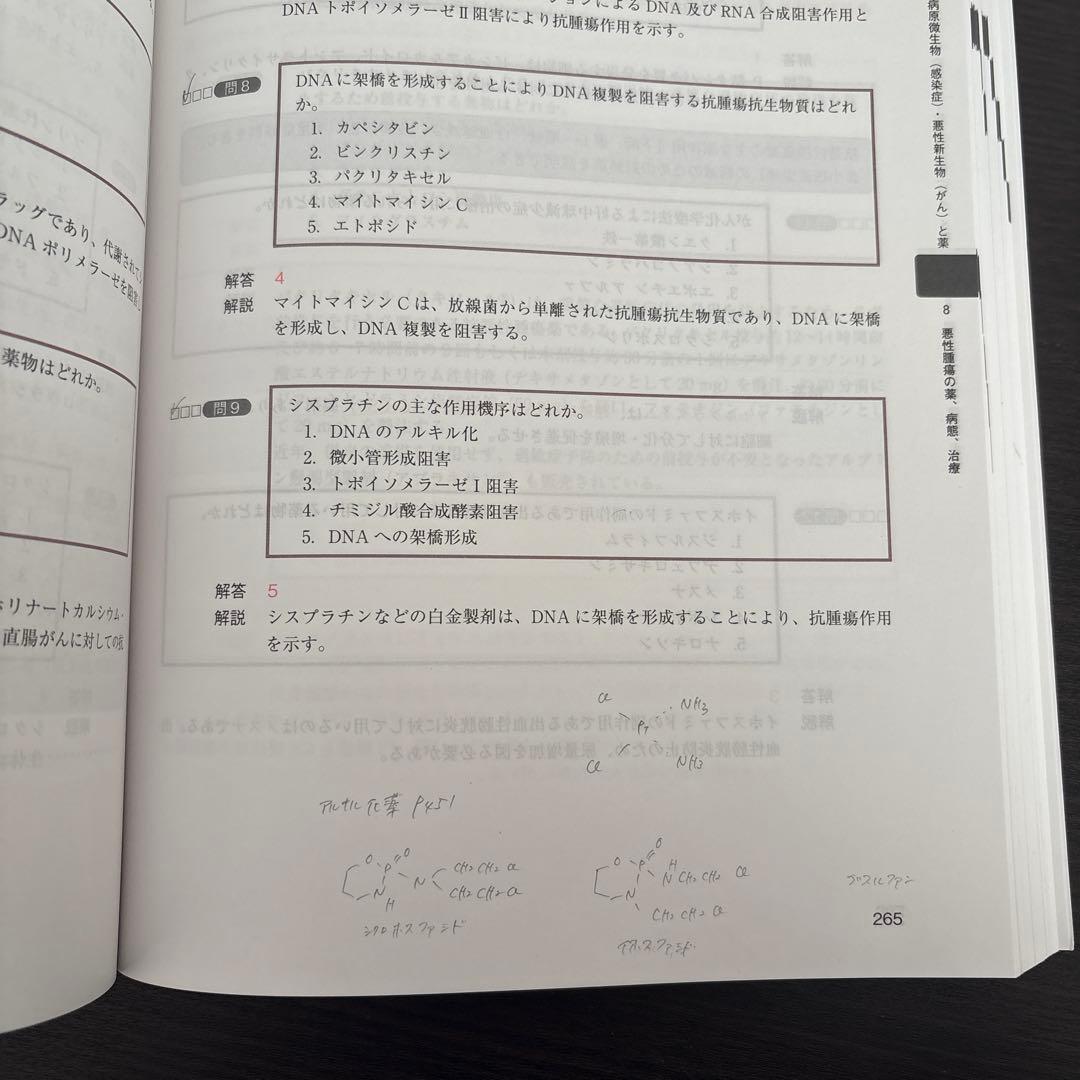 ラッグであり、代謝されて
DNA ポリメラーゼを阻害
薬物はどれか。
リナートカルシウム・
直腸がんに対しての
ションによる DNA 及び RNA 合成阻害作用と
DNA トポイソメラーゼⅡ阻害により抗腫瘍作用を示す。
問8
DNAに架橋を形成することによりDNA複製を阻害する抗腫瘍抗生物質はどれ
か。
1. カペシタビン
2. ビンクリスチン
3. パクリタキセル
4. マイトマイシンC
5. エトポシド
解答 4
解説 マイトマイシンCは、放線菌から単離された抗腫瘍抗生物質であり、DNAに架橋
を形成し、DNA複製を阻害する。
問9
シスプラチンの主な作用機序はどれか。
1. DNAのアルキル化
2. 微小管形成阻害
3. トポイソメラーゼⅠ阻害
4. チミジル酸合成酵素阻害
5. DNAへの架橋形成
解答 5
解説 シスプラチンなどの白金製剤は、DNAに架橋を形成することにより、抗腫瘍作用
を示す。
Cl NH3
Pt
Cl NH3
アルキル化薬 P451
O P O N CH2CH2Cl
CH2CH2Cl
N
H
シクロホスファミド
O P O H
N CH2CH2 Cl
N
CH2CH2Cl
イホスファミド
ブスルファン
265
病原微生物(感染症)・悪性新生物(がん)と薬
8 悪性腫瘍の薬、病態、治療